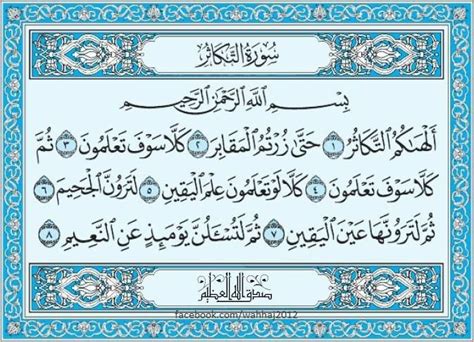 سُورَةُ التَّكَاثُرِ
بِسْمِ اللَّهِ الرَّحْمَٰنِ الرَّحِيمِ
أَلْهَىٰكُمُ التَّكَاثُرُ ١ حَتَّىٰ زُرْتُمُ الْمَقَابِرَ ٢ كَلَّا سَوْفَ تَعْلَمُونَ ٣ ثُمَّ
كَلَّا سَوْفَ تَعْلَمُونَ ٤ كَلَّا لَوْ تَعْلَمُونَ عِلْمَ الْيَقِينِ ٥ لَتَرَوُنَّ الْجَحِيمَ ٦
ثُمَّ لَتَرَوُنَّهَا عَيْنَ الْيَقِينِ ٧ ثُمَّ لَتُسْـَٔلُنَّ يَوْمَئِذٍ عَنِ النَّعِيمِ ٨
صدق الله العظيم
facebook.com/wahhaj2012